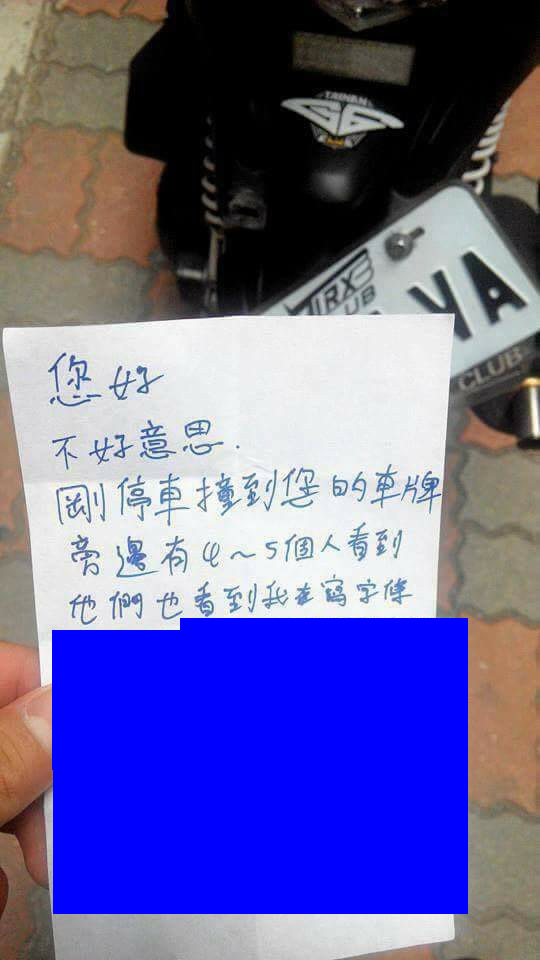 TAINAN
G6
RX
CLUB
VA
CLUB
您好
不好意思.
剛停車撞到您的車牌
旁邊有4~5個人看到
他們也看到我在寫字條